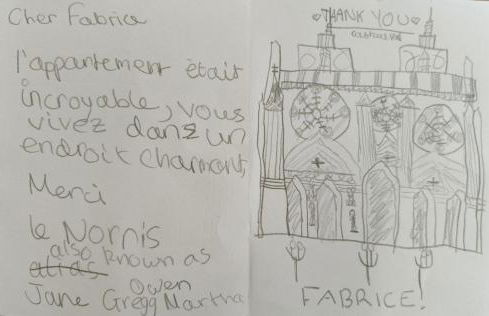 Cher Fabrice
l'appartement était
incroyable, vous
vivez dans un
endroit charmant,
Merci
le Nornis
also known as
ali as
Owen
Jane Gregg Martha
♥THANK YOU♥
FABRICE!